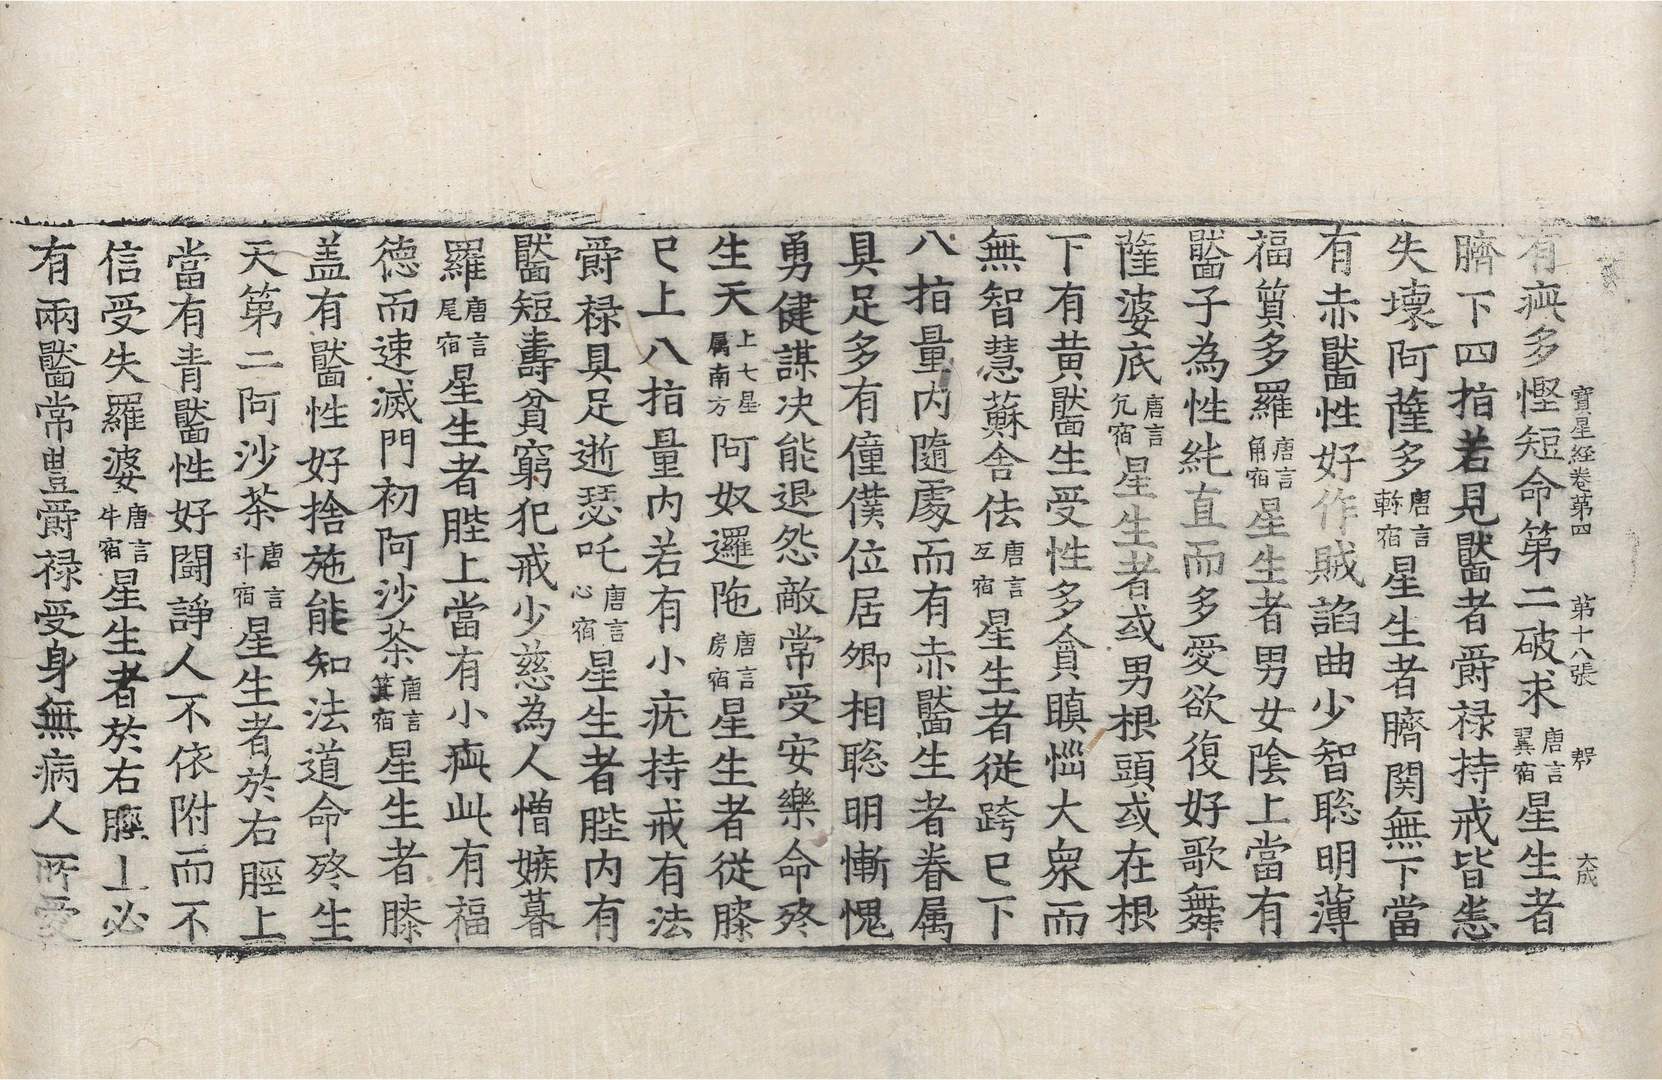 寶星経卷第四 第十八張 大成
有疵多慳短命第二破求唐言翼宿星生者
臍下四指若見黶者爵禄持戒皆恙
失壞阿薩多唐言軫宿星生者臍関無下當
有赤黶性好作賊諂曲少智聡明薄
福質多羅唐言角宿星生者男女陰上當有
黶子為性純直而多愛欲復好歌舞
薩婆底唐言亢宿星生者或男根頭或在根
下有黄黶生受性多貪瞋惱大衆而
無智慧蘇舍佉唐言互宿星生者從跨巳下
八指量内隨處而有赤黶生者眷属
具足多有僮僕位居卿相聡明慚愧
勇健謀决能退怨敵常受安樂命終
生天上七星属南方阿奴邏陁唐言房宿星生者從膝
巳上八指量内若有小疣持戒有法
爵禄具足逝瑟吒唐言心宿星生者䏶内有
黶短壽貧窮犯戒少慈為人憎嫉暮
羅唐言尾宿星生者䏶上當有小疵此有福
德而速滅門初阿沙荼唐言箕宿星生者膝
盖有黶性好捨施能知法道命終生
天第二阿沙荼唐言斗宿星生者於右脛上
當有青黶性好鬪諍人不依附而不
信受失羅婆唐言牛宿星生者於右䏶上必
有兩黶常豊爵禄受身無病人所愛